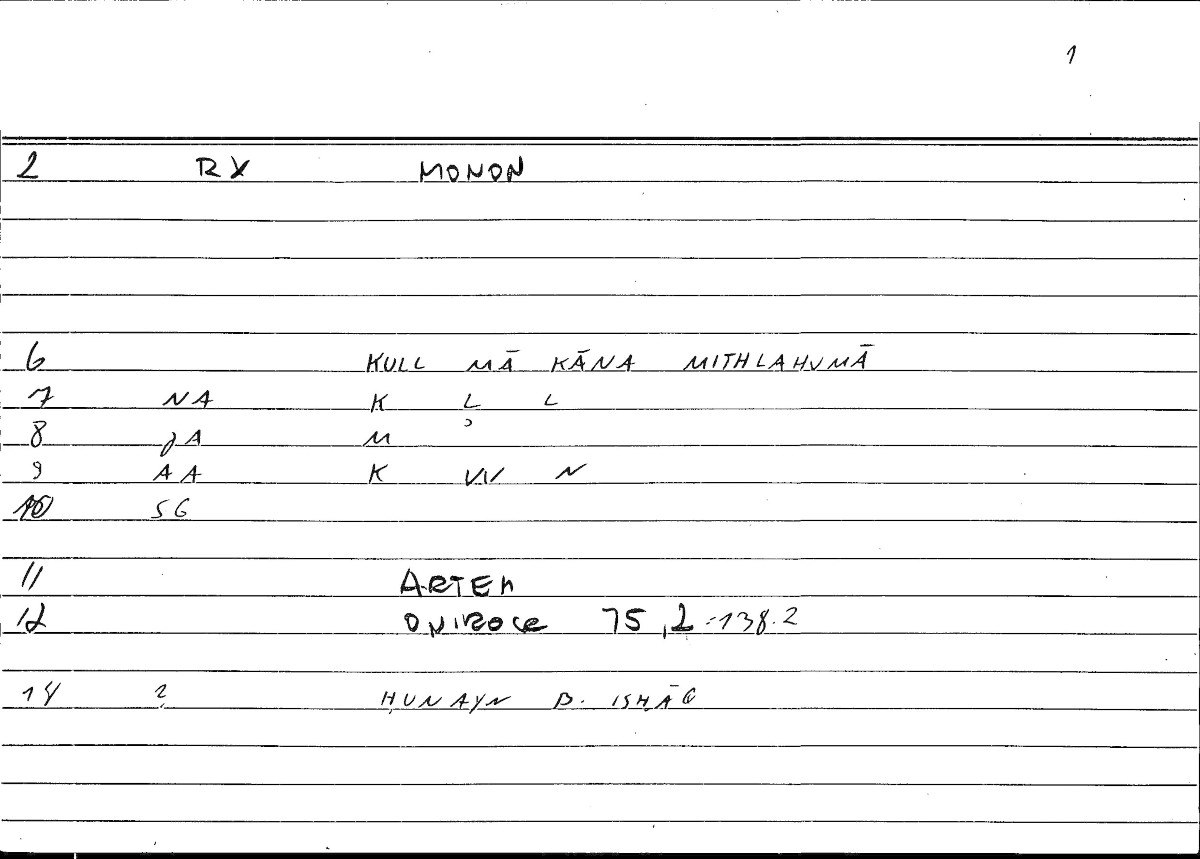 1
2 RX MONON
6 KULL MĀ KĀNA MITHLAHUMĀ
7 NA K L L
8 JA M ʾ
9 AA K W N
10 SG
11 ARTEM
12 ONIROCR 75,2 - 138.2
14 ? ḤUNAYN B. ISḤĀQ